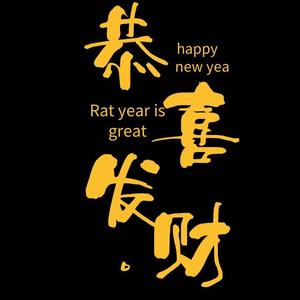 恭
happy
new yea
Rat year is
great
喜
发
财